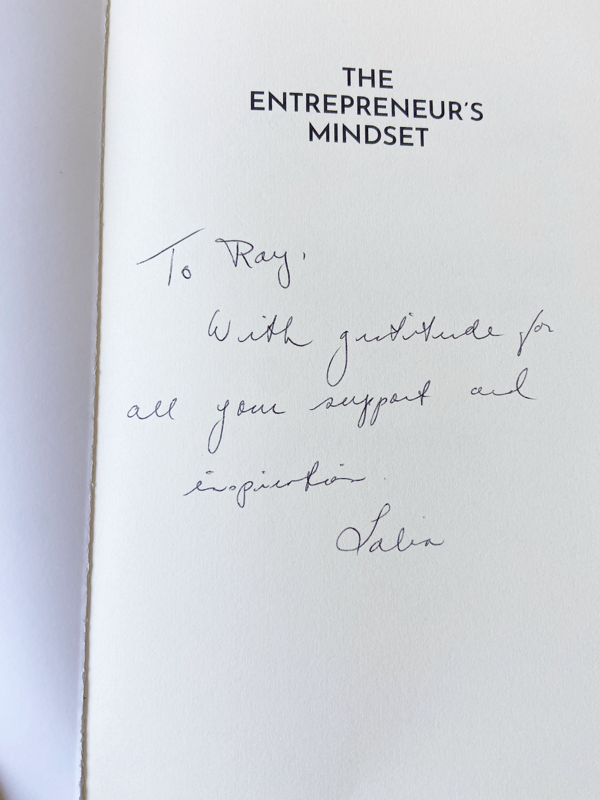 THE
ENTREPRENEUR'S
MINDSET
To Ray,
With gratitude for
all your support and
inspiration.